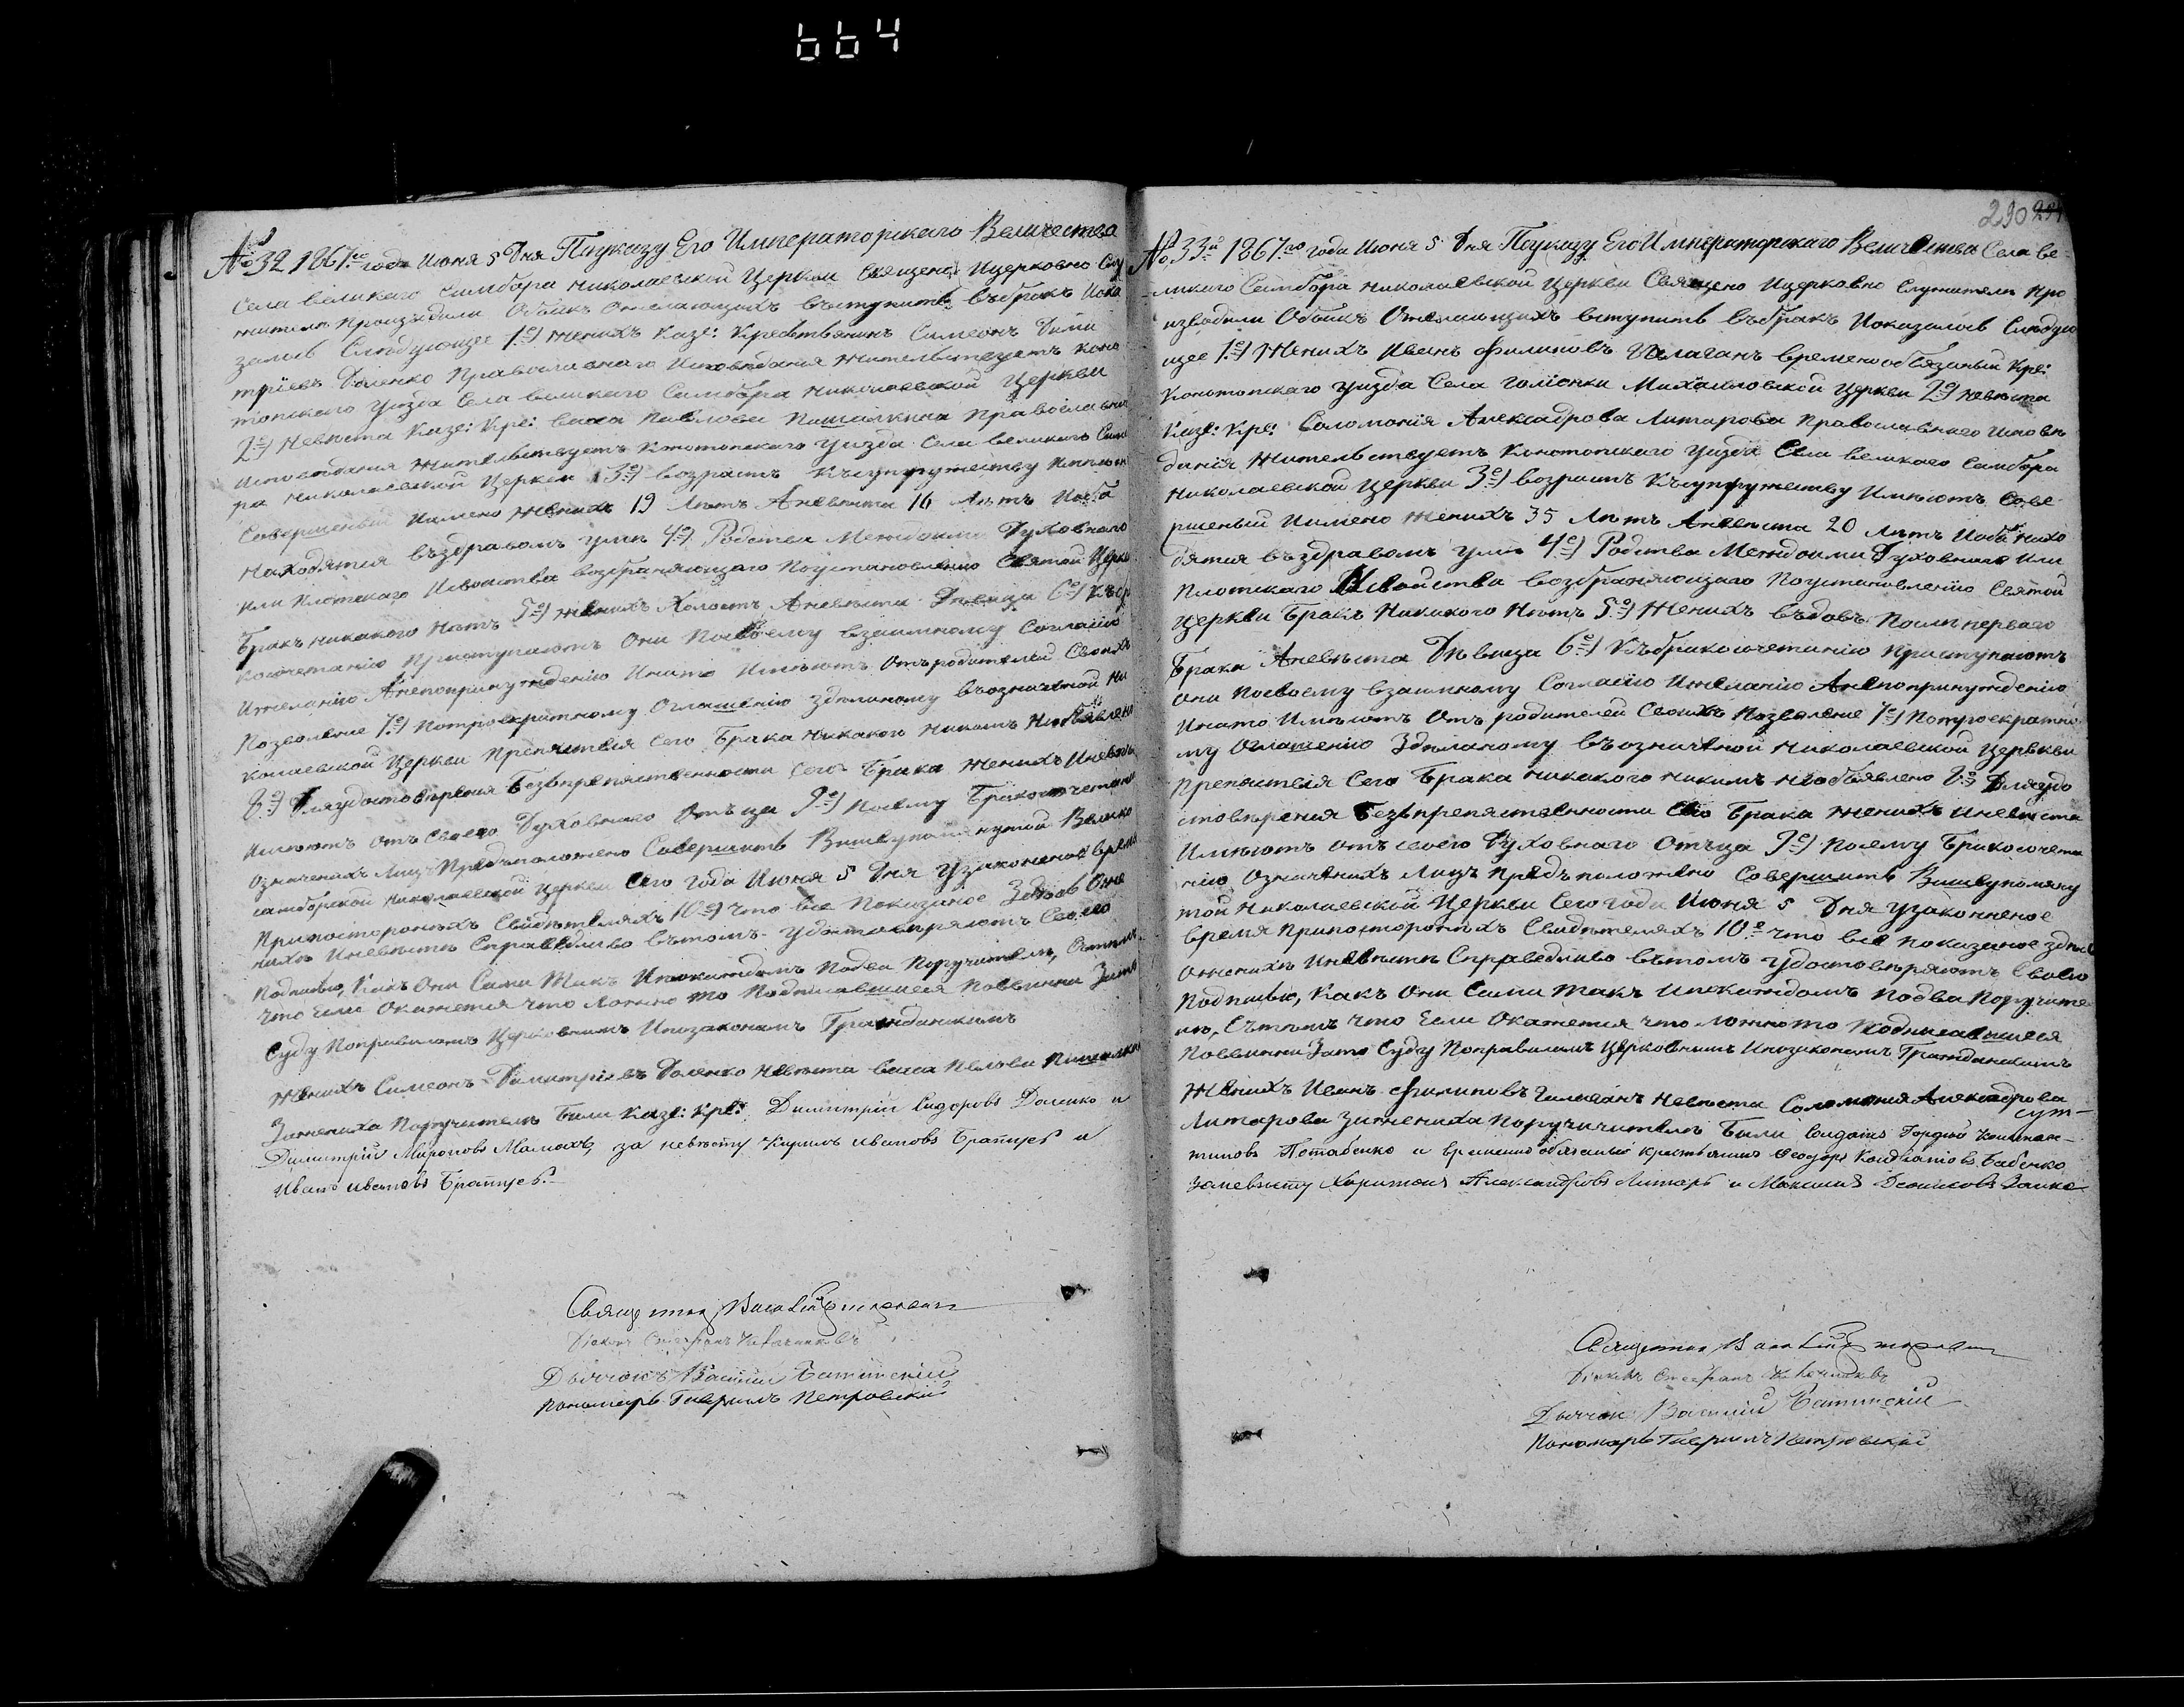 664
№ 32 1867го года Июня 5 Дня Поуказу Его Императорского Величества
Села великого Самбора Николаевской Церкви Священо Ицерковно Слу
жители Произвдили Обыкъ Ожелающихъ въступить въбракъ Иока
залось Следующее 1е) Женихъ Казе: Крестьянинъ Симеонъ Дими
тріевъ Доленко Православнаго Исповедания Жительствуетъ коно
топского уизда Села великаго Самбора Николаевской Церкви
2е) Невѣста Казе: Кре: Павлова Православна
Исповѣдания жительствуетъ Конотопского уизда Села великого Самбо
ра Николаевской Церкви 3е) возрастъ Късупружеству Имѣют
Совершеный Имено Женихъ 19 Лѣтъ Аневѣста 16 Лѣтъ Иоба
Находятся въздравомъ умѣ 4е) Родства Междоими Духовнаго
или Плотскаго Исвойства возбраняющаго Поустановленію Святой Церкв
Бракъ никакого Нѣтъ 5е) Женихъ Холостъ Аневѣста Дѣвица 6е) Къбр
косочетанію Приступаютъ Они Посвоему взаимному Согласію
Ижеланію Анепопринуждению Инато Имѣютъ Отъродителей Своихъ
Позволение 7е) Потроекратному Оглашению зделаному въозначеной Ни
колаевской Церкви Препятствія Сего Брака Никакого Никимъ Необявлено
8е) Дляудостовѣрения Безъпрепятственности Сего Брака Женихъ Иневѣста
Имѣютъ отъ своего Духовнаго Отъца 9е) Посему Бракосочетание
Означеныхъ Лицъ Предъположено Совершить Ввишеупомянутой Велико
самборской Николаевской Церкви Сего года Июня 5 Дня Узаконеное время
Припостороныхъ Свидѣтеляхъ 10е) Что все Показаное Здѣсь Оже
нихѣ Иневѣстѣ Справедливо вътомъ удостовѣряютъ Своею
Подписью, Какъ Они Сами Такъ Ипокаждомъ Подва Поручителя, Сътѣмъ
Что Если Окажется что Ложно то Подписавшиеся Повинни Зато
Суду Поправиламъ Церковнымъ Ипозаконамъ Гражданскимъ
Женихъ Симеонъ Димитріевъ Доленко Невѣста Павлова
Зажениха Поручители Были Казе: Кре: Димитрій Сидоровъ Доленко и
Димитрій Мироновъ Малахъ, за невѣсту Кирилъ Ивановъ Братусъ и
Иванъ Ивановъ Братусъ.
Священник
Діаконъ Стефанъ
Дьячокъ Василий
Пономарь Гавриилъ Петровский
290
№ 33й 1867го года Июня 5 Дня Поуказу Его Императорского Величества Села ве-
ликаго Самбора Николаевской Церкви Священо Ицерковно Служители Про
изводили Обыкъ Ожелающихъ вступить въбракъ Иоказалось Слѣдую
щее 1е) Женихъ Иванъ Филиповъ временообязаный Кре:
Конотопскаго уизда Села Голіонки Михаиловской Церкви 2е) Невѣста
Казе: Кре: Соломонія Александрова Литарова Православнаго Исповѣ
данія Жительствуетъ Конотопскаго уизда Села великаго Самбора
Николаевской Церкви 3е) возрастъ Късупружеству Имѣютъ Сове-
ршеный Имено Женихъ 35 Лѣтъ Аневѣста 20 Лѣтъ Иоба Нахо
дятся въздравомъ умѣ 4е) Родства Междоими Духовнаго Или
Плотскаго Исвойства возбраняющаго Поустановлению Святой
Церкви Бракъ Никакого Нѣтъ 5е) Женихъ въдовъ Послѣ перваго
Брака Аневѣста Дѣвица 6е) Къбракосочетанію Приступаютъ
они Посвоему взаимному Согласію Ижеланію Анепопринуждению
Инато Имѣютъ Отъ родителей Своихъ Позволение 7е) Потроекратно
му Оглашению Зделаному въозначеной Николаевской Церкви
Препятствія Сего Брака Никакого Никимъ Необявлено 8е) Дляудо
стовѣрения Безъпрепятственности Сего Брака Женихъ Иневѣста
Имѣютъ отъ своего Духовнаго Отъца 9е) Посему Бракосочета
нію Означеныхъ Лицъ Предъположено Совершить Ввишеупомяну
той Николаевской Церкви Сего года Июня 5 Дня Узаконеное
время Припостороныхъ Свидѣтеляхъ 10е Что все Показаное здѣсь
Ожениxѣ Иневѣстѣ Справедливо вътомъ удостовѣряютъ Своею
Подписью, Какъ Они Сами Такъ Ипокаждомъ Подва Поручите
лю, Сътѣмъ что Если Окажется что Ложното Подписавшиеся
Повинни Зато Суду Поправиламъ Церковнымъ Ипозаконамъ Гражданскимъ
Женихъ Иванъ Филиповъ Невѣста Соломонія Александрова
Литарова Зажениха Поручичители Были Солдатъ Гордѣй
Потабенко и временно обязаный крестьянинъ Феодоръ Кондратовъ Бабенко
Заневѣсту Харитонъ Александровъ Литарь и Максимъ Заика
Священник
Діаконъ Стефанъ
Дьячокъ Василий
Пономарь Гавриилъ Петровский